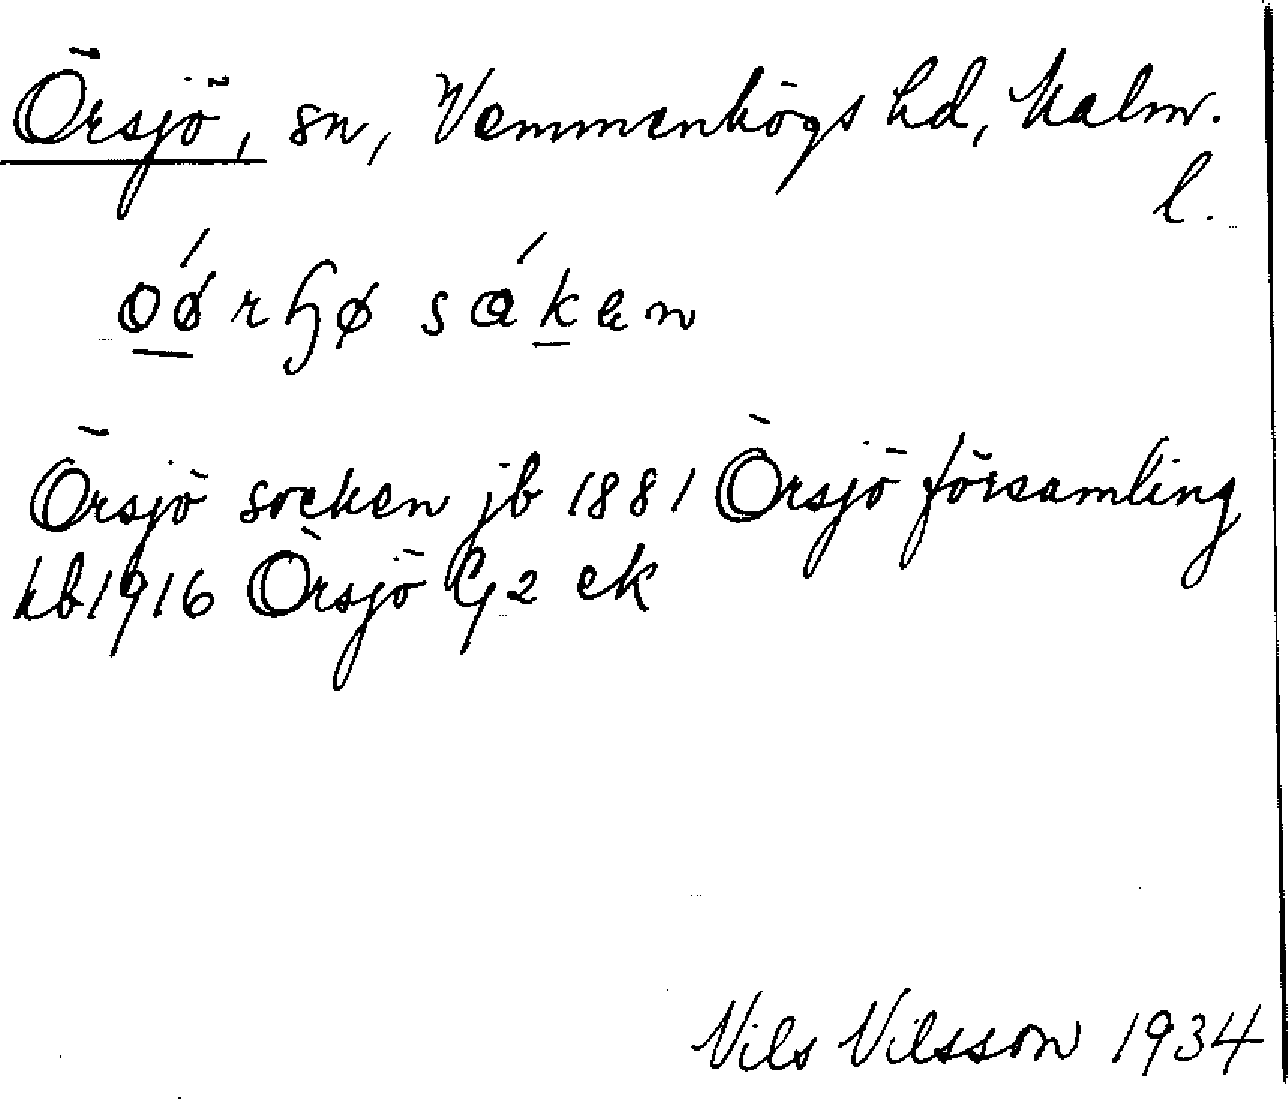 Örsjö, sn, Vemmenhögs hd, Malm.
l.
oǿrꞕø såken
Örsjö socken jb 1881 Örsjö församling
kb 1916 Örsjö G2 ek
Nils Nilsson 1934